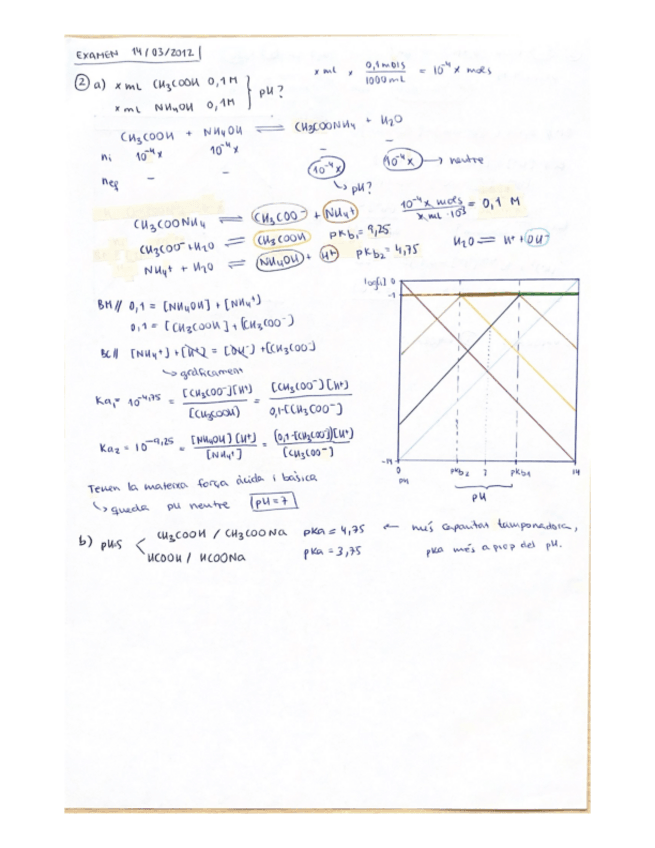 EXAMEN 14/03/2012
② a) x mL CH₃COOH 0,1M
x mL NH₄OH 0,1M } pH?
x mL × 0,1 mols / 1000 mL = 10⁻⁴ x mols
CH₃COOH + NH₄OH ⇌ CH₃COONH₄ + H₂O
ni 10⁻⁴x 10⁻⁴x – –
neq – – 10⁻⁴x 10⁻⁴x → neutre
↳ pH?
CH₃COONH₄ ⇌ CH₃COO⁻ + NH₄⁺
10⁻⁴ x mols / x mL · 10³ = 0,1 M
CH₃COO⁻ + H₂O ⇌ CH₃COOH pKb₁ = 9,25
NH₄⁺ + H₂O ⇌ NH₄OH + H⁺ pKb₂ = 4,75
H₂O ⇌ H⁺ + OH⁻
BM// 0,1 = [NH₄OH] + [NH₄⁺]
0,1 = [CH₃COOH] + [CH₃COO⁻]
BC// [NH₄⁺] + [H⁺] = [OH⁻] + [CH₃COO⁻]
↳ gràficament
Ka₁ = 10⁻⁴,⁷⁵ = [CH₃COO⁻][H⁺] / [CH₃COOH] = [CH₃COO⁻][H⁺] / 0,1-[CH₃COO⁻]
Ka₂ = 10⁻⁹,²⁵ = [NH₄OH][H⁺] / [NH₄⁺] = (0,1-[CH₃COO⁻])[H⁺] / [CH₃COO⁻]
Tenen la mateixa força àcida i bàsica
↳ queda pH neutre pH=7
log[i] 0
-1
-14
0 pKb₂ 7 pKb₁ 14
pH
pH
b) pH=5 < CH₃COOH / CH₃COONa pKa = 4,75 ← més capacitat tamponadora,
HCOOH / HCOONa pKa = 3,75 pKa més a prop del pH.